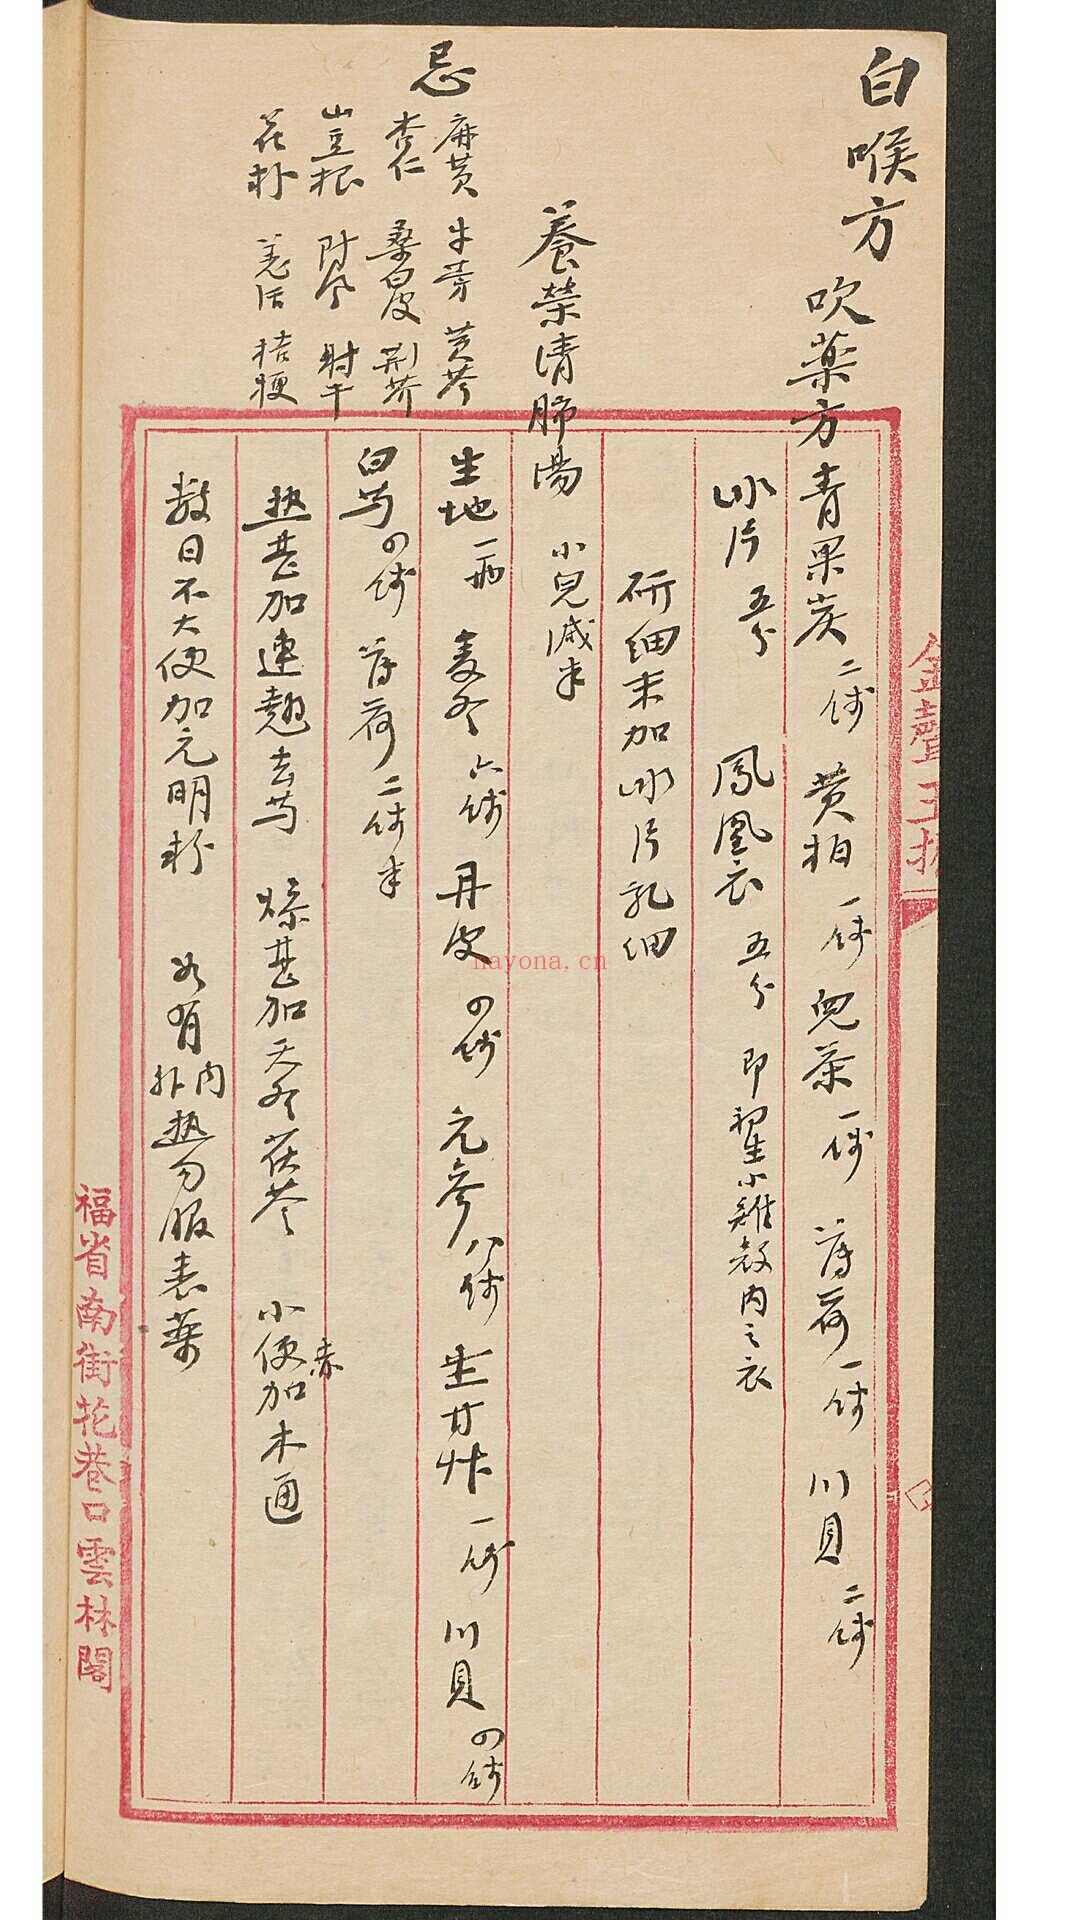 白喉方
吹藥方 青果炭二錢 黄柏一錢 児茶一錢 薄荷一錢 川貝二錢
冰片五分 鳳凰衣五分 即初生小雞殼内之衣
研细末加冰片乳细
養榮清肺湯 小児減半
生地一两 麦冬六錢 丹皮四錢 元參八錢 生甘艸一錢 川貝四錢
白芍四錢 薄荷二錢半
热甚加連翹去芍 燥甚加天冬茯苓 小便赤加木通
数日不大便加元明粉 如有内外热勿服表藥
忌
麻黄 牛蒡 黄芩
杏仁 桑白皮 荆芥
山豆根 防风 射干
花朴 羌活 桔梗
福省南街花巷口雲林閣
nayona.cn